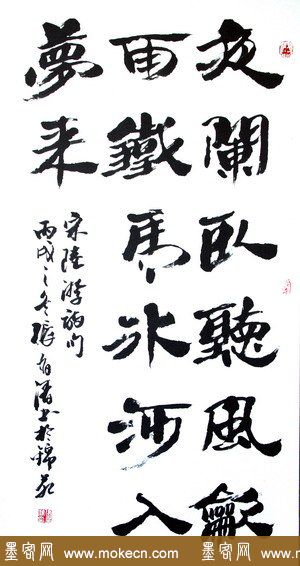 夜闌臥聽風龡
雨鐵馬冰河入
夢来
宋陸游詩句
丙戌之冬張书於錦
墨客网 www.mokecn.com 墨客网 www.mokecn.com